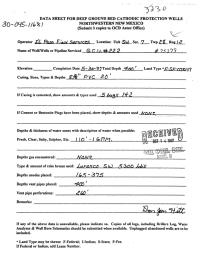 3230
30-045-11681
DATA SHEET FOR DEEP GROUND BED CATHODIC PROTECTION WELLS
NORTHWESTERN NEW MEXICO
(Submit 3 copies to OCD Aztec Office)
Operator El Paso Field Services Location: Unit SW Sec. 7 Twp 28 Rng 12
Name of Well/Wells or Pipeline Serviced
Elevation Completion Date Total Depth 400' Land Type
Casing, Sizes, Types & Depths 8" PVC 20'
If Casing is cemented, show amounts & types used 5 bags
If Cement or Bentonite Plugs have been placed, show depths & amounts used NONE
Depths & thickness of water zones with description of water when possible:
Fresh, Clear, Salty, Sulphur, Etc. 110'-1 GPM.
Depths gas encountered: NONE
Type & amount of coke breeze used: Loresco SW 5300 lbs
Depths anodes placed: 165-375
Depths vent pipes placed: 400'
Vent pipe perforations: 260'
Remarks:
If any of the above data is unavailable, please indicate so. Copies of all logs, including Drillers Log, Water
Analyses & Well Bore Schematics should be submitted when available. Unplugged abandoned wells are to be
included.
* Land Type may be shown: F-Federal; I-Indian; S-State; P-Fee
If Federal or Indian, add Lease Number.